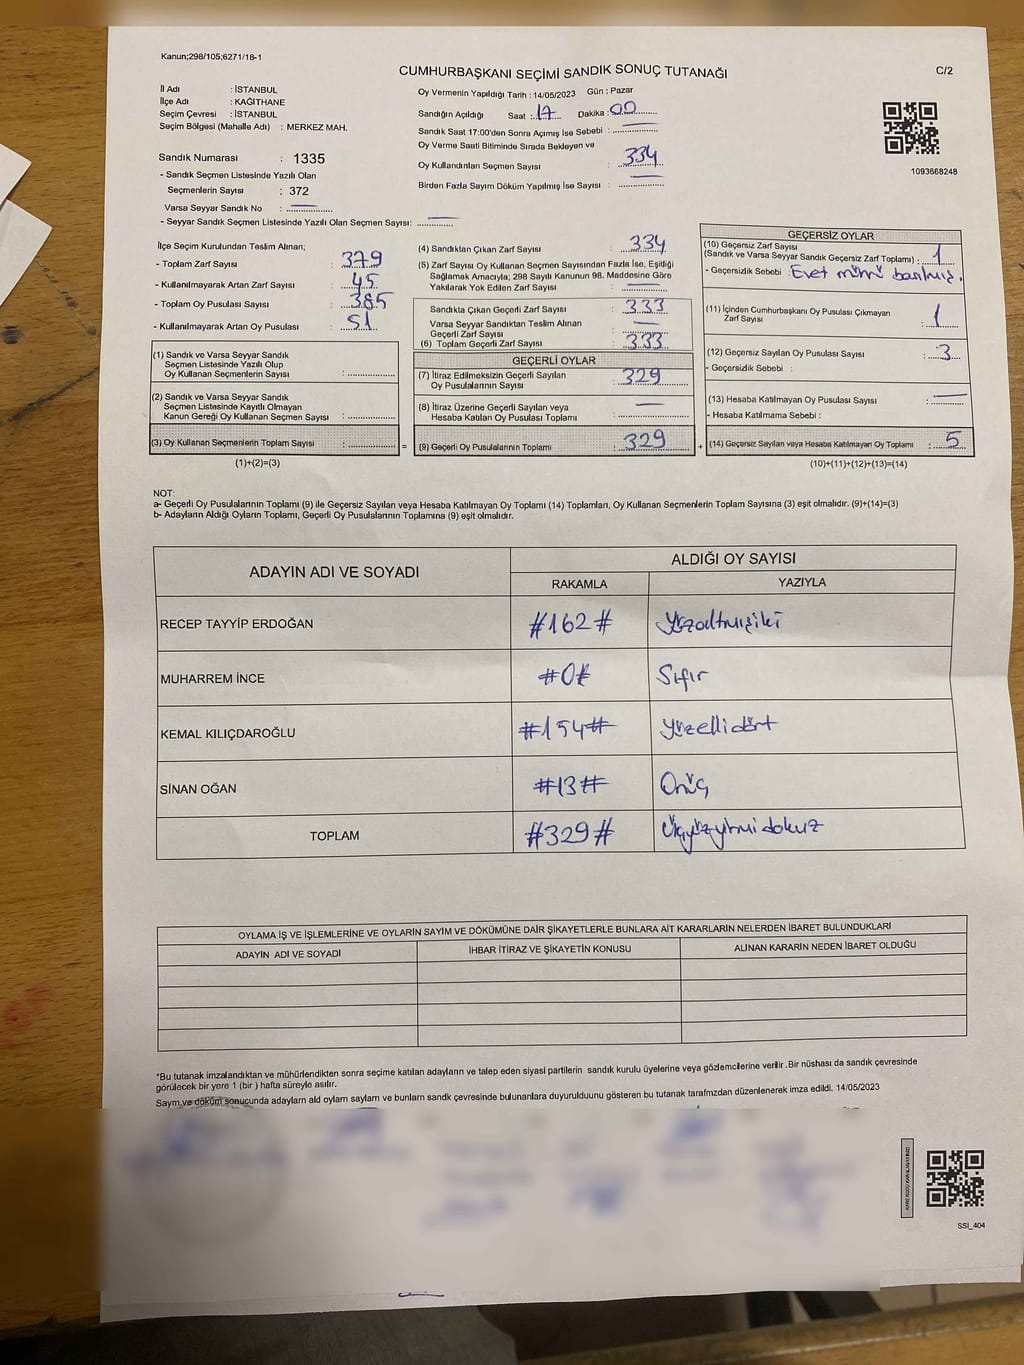 Kanun;298/105;6271/18-1
CUMHURBAŞKANI SEÇİMİ SANDIK SONUÇ TUTANAĞI
C/2
İl Adı : İSTANBUL
İlçe Adı : KAĞITHANE
Seçim Çevresi : İSTANBUL
Seçim Bölgesi (Mahalle Adı) : MERKEZ MAH.
Sandık Numarası : 1335
- Sandık Seçmen Listesinde Yazılı Olan
Seçmenlerin Sayısı : 372
Varsa Seyyar Sandık No :
- Seyyar Sandık Seçmen Listesinde Yazılı Olan Seçmen Sayısı:
Oy Vermenin Yapıldığı Tarih : 14/05/2023 Gün : Pazar
Sandığın Açıldığı Saat : 17 Dakika : 00
Sandık Saat 17:00'den Sonra Açımış İse Sebebi :
Oy Verme Saati Bitiminde Sırada Bekleyen ve
Oy Kullandırılan Seçmen Sayısı : 334
Birden Fazla Sayım Döküm Yapılmış İse Sayısı :
1093668248
İlçe Seçim Kurulundan Teslim Alınan;
- Toplam Zarf Sayısı : 379
- Kullanılmayarak Artan Zarf Sayısı : 45
- Toplam Oy Pusulası Sayısı : 385
- Kullanılmayarak Artan Oy Pusulası : 51
(1) Sandık ve Varsa Seyyar Sandık
Seçmen Listesinde Yazılı Olup
Oy Kullanan Seçmenlerin Sayısı :
(2) Sandık ve Varsa Seyyar Sandık
Seçmen Listesinde Kayıtlı Olmayan
Kanun Gereği Oy Kullanan Seçmen Sayısı :
(3) Oy Kullanan Seçmenlerin Toplam Sayısı : =
(1)+(2)=(3)
(4) Sandıktan Çıkan Zarf Sayısı : 334
(5) Zarf Sayısı Oy Kullanan Seçmen Sayısından Fazla İse, Eşitliği
Sağlamak Amacıyla; 298 Sayılı Kanunun 98. Maddesine Göre
Yakılarak Yok Edilen Zarf Sayısı :
Sandıkta Çıkan Geçerli Zarf Sayısı : 333
Varsa Seyyar Sandıktan Teslim Alınan
Geçerli Zarf Sayısı :
(6) Toplam Geçerli Zarf Sayısı : 333
GEÇERLİ OYLAR
(7) İtiraz Edilmeksizin Geçerli Sayılan
Oy Pusulalarının Sayısı : 329
(8) İtiraz Üzerine Geçerli Sayılan veya
Hesaba Katılan Oy Pusulası Toplamı :
(9) Geçerli Oy Pusulalarının Toplamı : 329 +
GEÇERSİZ OYLAR
(10) Geçersiz Zarf Sayısı
(Sandık ve Varsa Seyyar Sandık Geçersiz Zarf Toplamı) : 1
- Geçersizlik Sebebi : Evet mührü basılmış.
(11) İçinden Cumhurbaşkanı Oy Pusulası Çıkmayan
Zarf Sayısı : 1
(12) Geçersiz Sayılan Oy Pusulası Sayısı : 3
- Geçersizlik Sebebi :
(13) Hesaba Katılmayan Oy Pusulası Sayısı :
- Hesaba Katılmama Sebebi :
(14) Geçersiz Sayılan veya Hesaba Katılmayan Oy Toplamı : 5
(10)+(11)+(12)+(13)=(14)
NOT:
a- Geçerli Oy Pusulalarının Toplamı (9) ile Geçersiz Sayılan veya Hesaba Katılmayan Oy Toplamı (14) Toplamları, Oy Kullanan Seçmenlerin Toplam Sayısına (3) eşit olmalıdır. (9)+(14)=(3)
b- Adayların Aldığı Oyların Toplamı, Geçerli Oy Pusulalarının Toplamına (9) eşit olmalıdır.
ADAYIN ADI VE SOYADI ALDIĞI OY SAYISI
RAKAMLA YAZIYLA
RECEP TAYYİP ERDOĞAN #162# Yüzaltmışiki
MUHARREM İNCE #0# Sıfır
KEMAL KILIÇDAROĞLU #154# Yüzellidört
SİNAN OĞAN #13# Onüç
TOPLAM #329# Üçyüzyirmidokuz
OYLAMA İŞ VE İŞLEMLERİNE VE OYLARIN SAYIM VE DÖKÜMÜNE DAİR ŞİKAYETLERLE BUNLARA AİT KARARLARIN NELERDEN İBARET BULUNDUKLARI
ADAYIN ADI VE SOYADI İHBAR İTİRAZ VE ŞİKAYETİN KONUSU ALINAN KARARIN NEDEN İBARET OLDUĞU
*Bu tutanak imzalandıktan ve mühürlendikten sonra seçime katılan adayların ve talep eden siyasi partilerin sandık kurulu üyelerine veya gözlemcilerine verilir .Bir nüshası da sandık çevresinde
görülecek bir yere 1 (bir ) hafta süreyle asılır.
Sayım ve döküm sonucunda adayların ald oyların sayların ve bunların sandk çevresinde bulunanlara duyurulduunu gösteren bu tutanak tarafmzdan düzenlenerek imza edildi. 14/05/2023
SSI_404